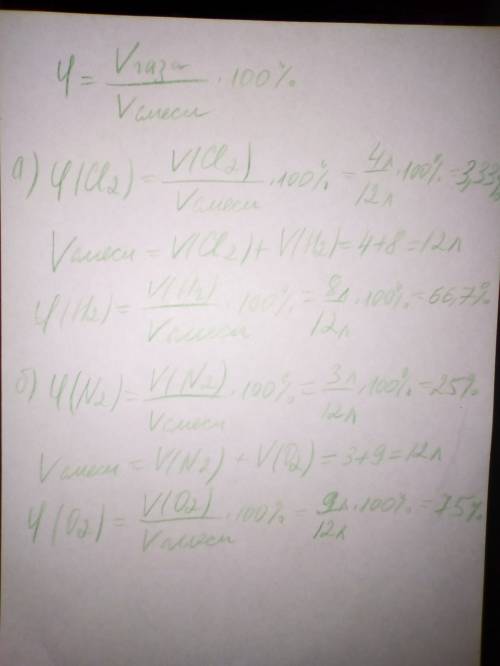 φ = Vгаза / Vсмеси · 100%
а) φ(Cl2) = V(Cl2) / Vсмеси · 100% = 4л / 12л · 100% = 3,33%
Vсмеси = V(Cl2) + V(H2) = 4+8 = 12л
φ(H2) = V(H2) / Vсмеси · 100% = 8л / 12л · 100% = 66,7%
б) φ(N2) = V(N2) / Vсмеси · 100% = 3л / 12л · 100% = 25%
Vсмеси = V(N2) + V(O2) = 3+9 = 12л
φ(O2) = V(O2) / Vсмеси · 100% = 9л / 12л · 100% = 75%